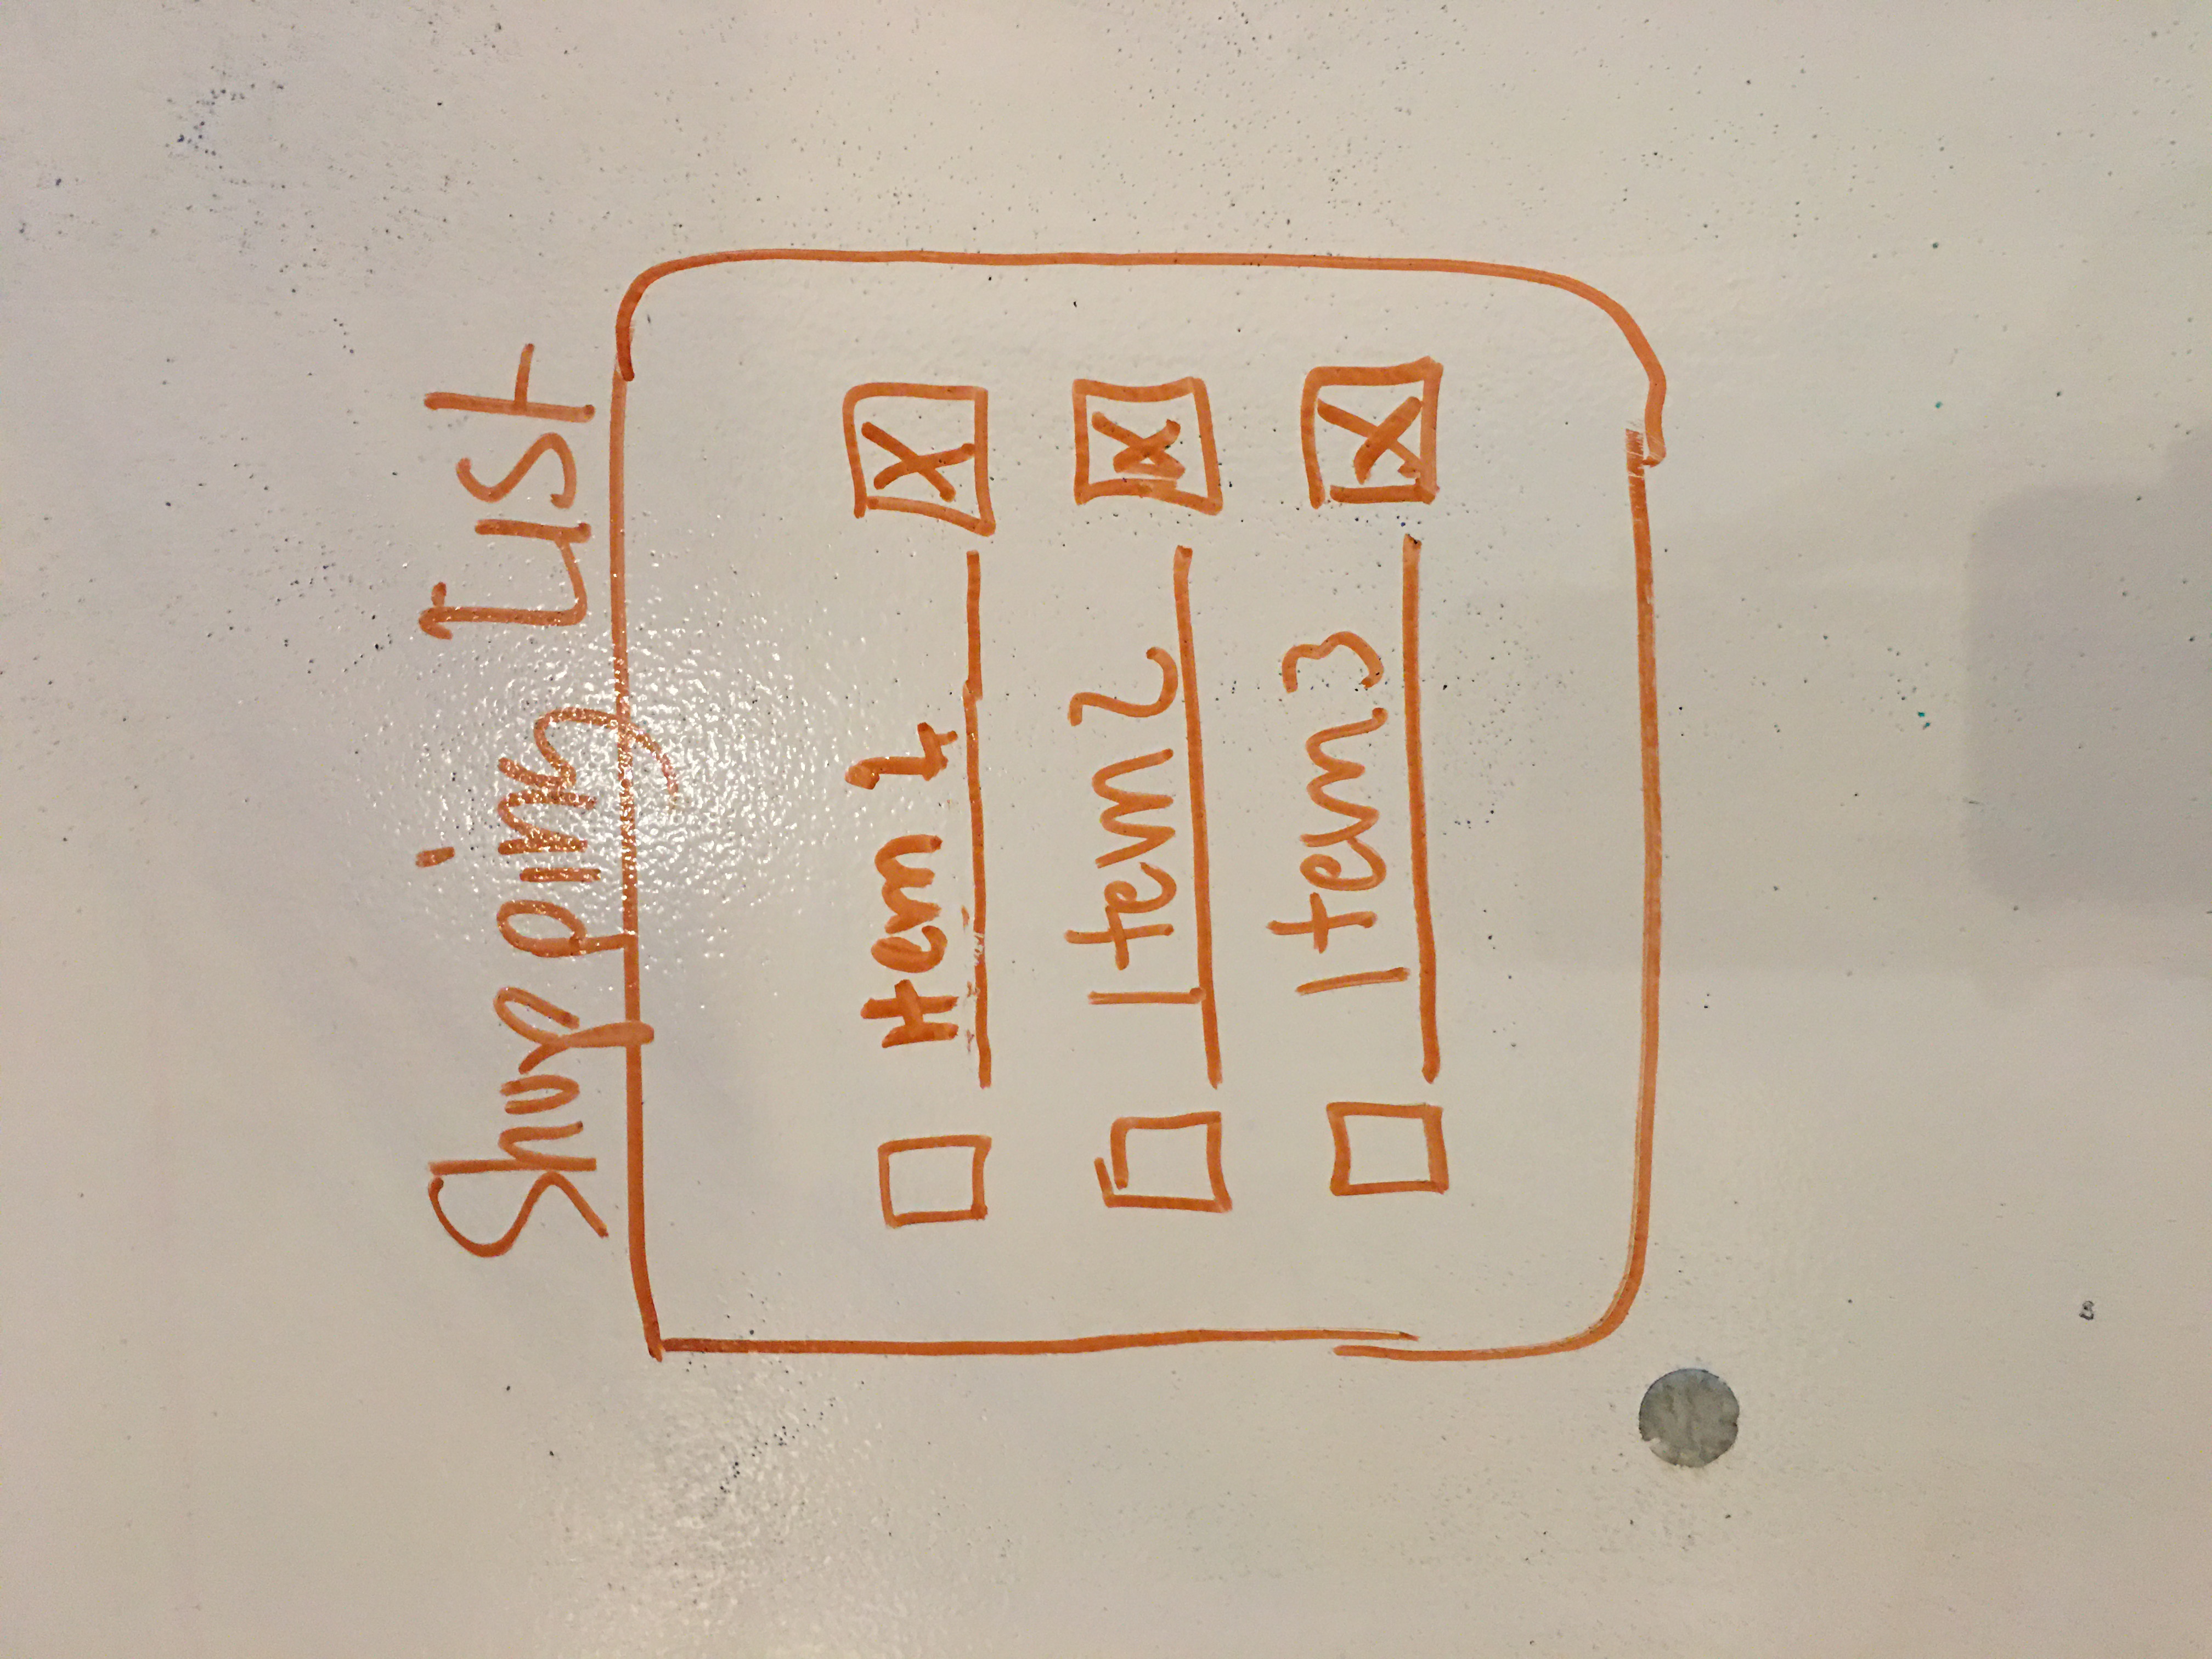 Shopping List
Item 1 X
Item 2 X
Item 3 X